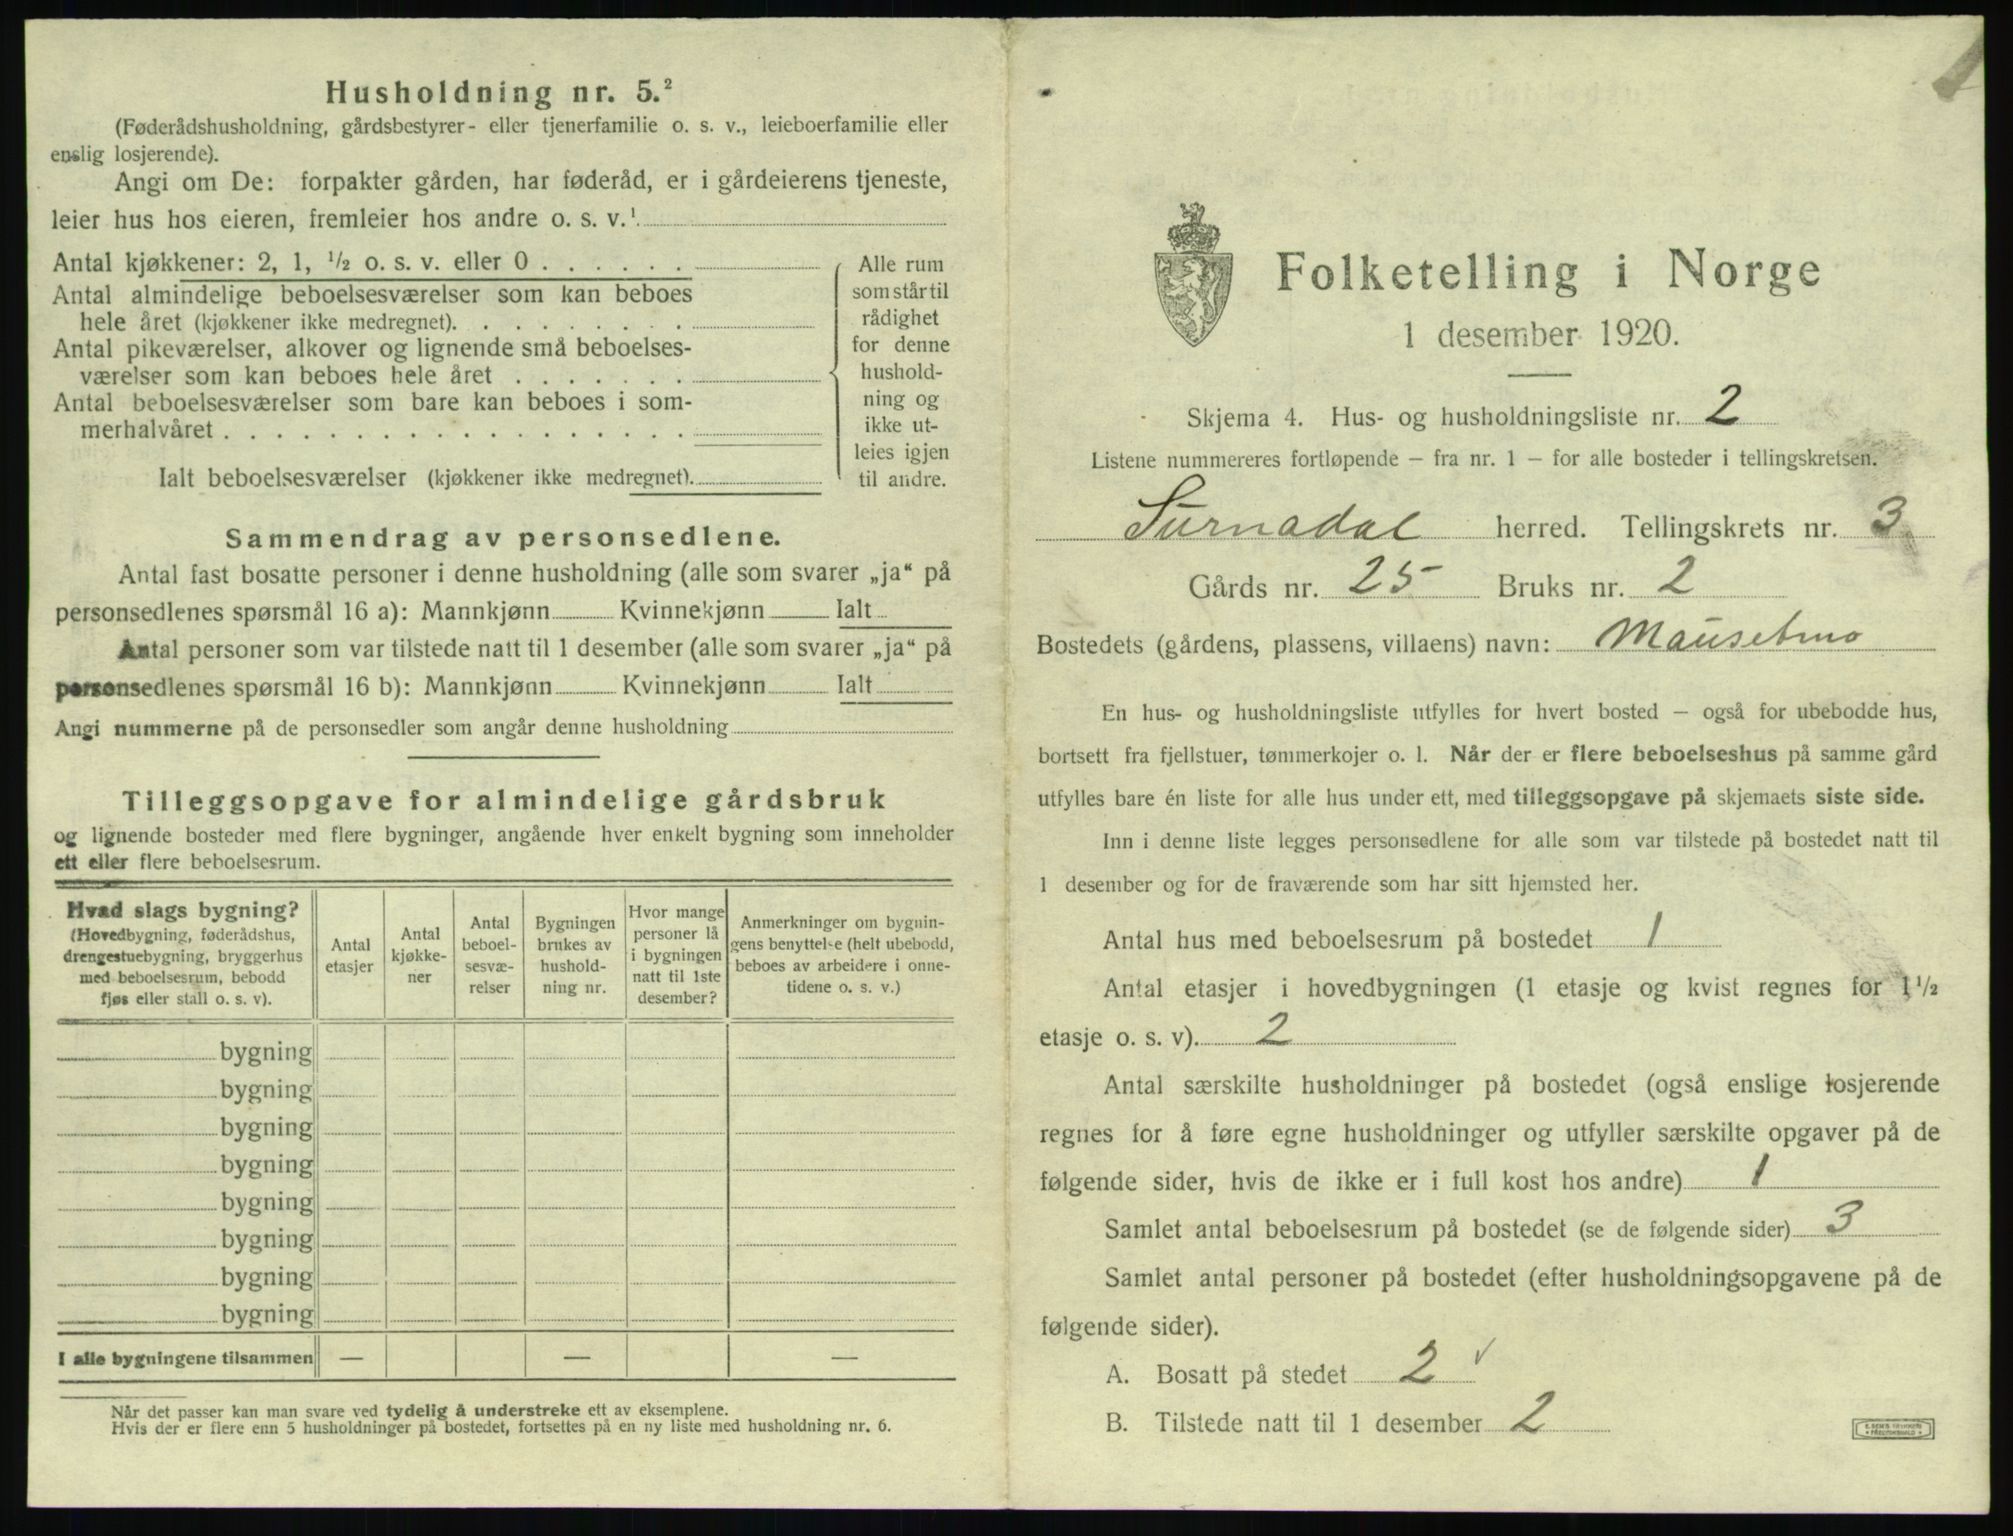 Husholdning nr. 5.²
(Føderådshusholdning, gårdsbestyrer- eller tjenerfamilie o. s. v., leieboerfamilie eller
enslig losjerende).
Angi om De: forpakter gården, har føderåd, er i gårdeierens tjeneste,
leier hus hos eieren, fremleier hos andre o. s. v.¹
Antal kjøkkener: 2, 1, ½ o. s. v. eller 0
Antal almindelige beboelsesværelser som kan beboes
hele året (kjøkkener ikke medregnet).
Antal pikeværelser, alkover og lignende små beboelses-
værelser som kan beboes hele året
Antal beboelsesværelser som bare kan beboes i som-
merhalvåret
Ialt beboelsesværelser (kjøkkener ikke medregnet).
Alle rum
som står til
rådighet
for denne
hushold-
ning og
ikke ut-
leies igjen
til andre.
Sammendrag av personsedlene.
Antal fast bosatte personer i denne husholdning (alle som svarer „ja“ på
personsedlenes spørsmål 16 a): Mannkjønn Kvinnekjønn Ialt
Antal personer som var tilstede natt til 1 desember (alle som svarer „ja“ på
personsedlenes spørsmål 16 b): Mannkjønn Kvinnekjønn Ialt
Angi nummerne på de personsedler som angår denne husholdning
Tilleggsopgave for almindelige gårdsbruk
og lignende bosteder med flere bygninger, angående hver enkelt bygning som inneholder
ett eller flere beboelsesrum.
Hvad slags bygning?
(Hovedbygning, føderådshus,
drengestuebygning, bryggerhus
med beboelsesrum, bebodd
fjøs eller stall o. s. v).
Antal
etasjer
Antal
kjøkke-
ner
Antal
beboel-
sesvæ-
relser
Bygningen
brukes av
hushold-
ning nr.
Hvor mange
personer lå
i bygningen
natt til 1ste
desember?
Anmerkninger om bygnin-
gens benyttelse (helt ubebodd,
beboes av arbeidere i onne-
tidene o. s. v.)
bygning
bygning
bygning
bygning
bygning
bygning
bygning
bygning
I alle bygningene tilsammen — — —
Når det passer kan man svare ved tydelig å understreke ett av eksemplene.
Hvis der er flere enn 5 husholdninger på bostedet, fortsettes på en ny liste med husholdning nr. 6.
Folketelling i Norge
1 desember 1920.
Skjema 4. Hus- og husholdningsliste nr. 2
Listene nummereres fortløpende — fra nr. 1 — for alle bosteder i tellingskretsen.
Surnadal herred. Tellingskrets nr. 3
Gårds nr. 25 Bruks nr. 2
Bostedets (gårdens, plassens, villaens) navn: Mausetmo
En hus- og husholdningsliste utfylles for hvert bosted — også for ubebodde hus,
bortsett fra fjellstuer, tømmerkojer o. l. Når der er flere beboelseshus på samme gård
utfylles bare én liste for alle hus under ett, med tilleggsopgave på skjemaets siste side.
Inn i denne liste legges personsedlene for alle som var tilstede på bostedet natt til
1 desember og for de fraværende som har sitt hjemsted her.
Antal hus med beboelsesrum på bostedet 1
Antal etasjer i hovedbygningen (1 etasje og kvist regnes for 1½
etasje o. s. v). 2
Antal særskilte husholdninger på bostedet (også enslige losjerende
regnes for å føre egne husholdninger og utfyller særskilte opgaver på de
følgende sider, hvis de ikke er i full kost hos andre) 1
Samlet antal beboelsesrum på bostedet (se de følgende sider) 3
Samlet antal personer på bostedet (efter husholdningsopgavene på de
følgende sider).
A. Bosatt på stedet 2 √
B. Tilstede natt til 1 desember 2